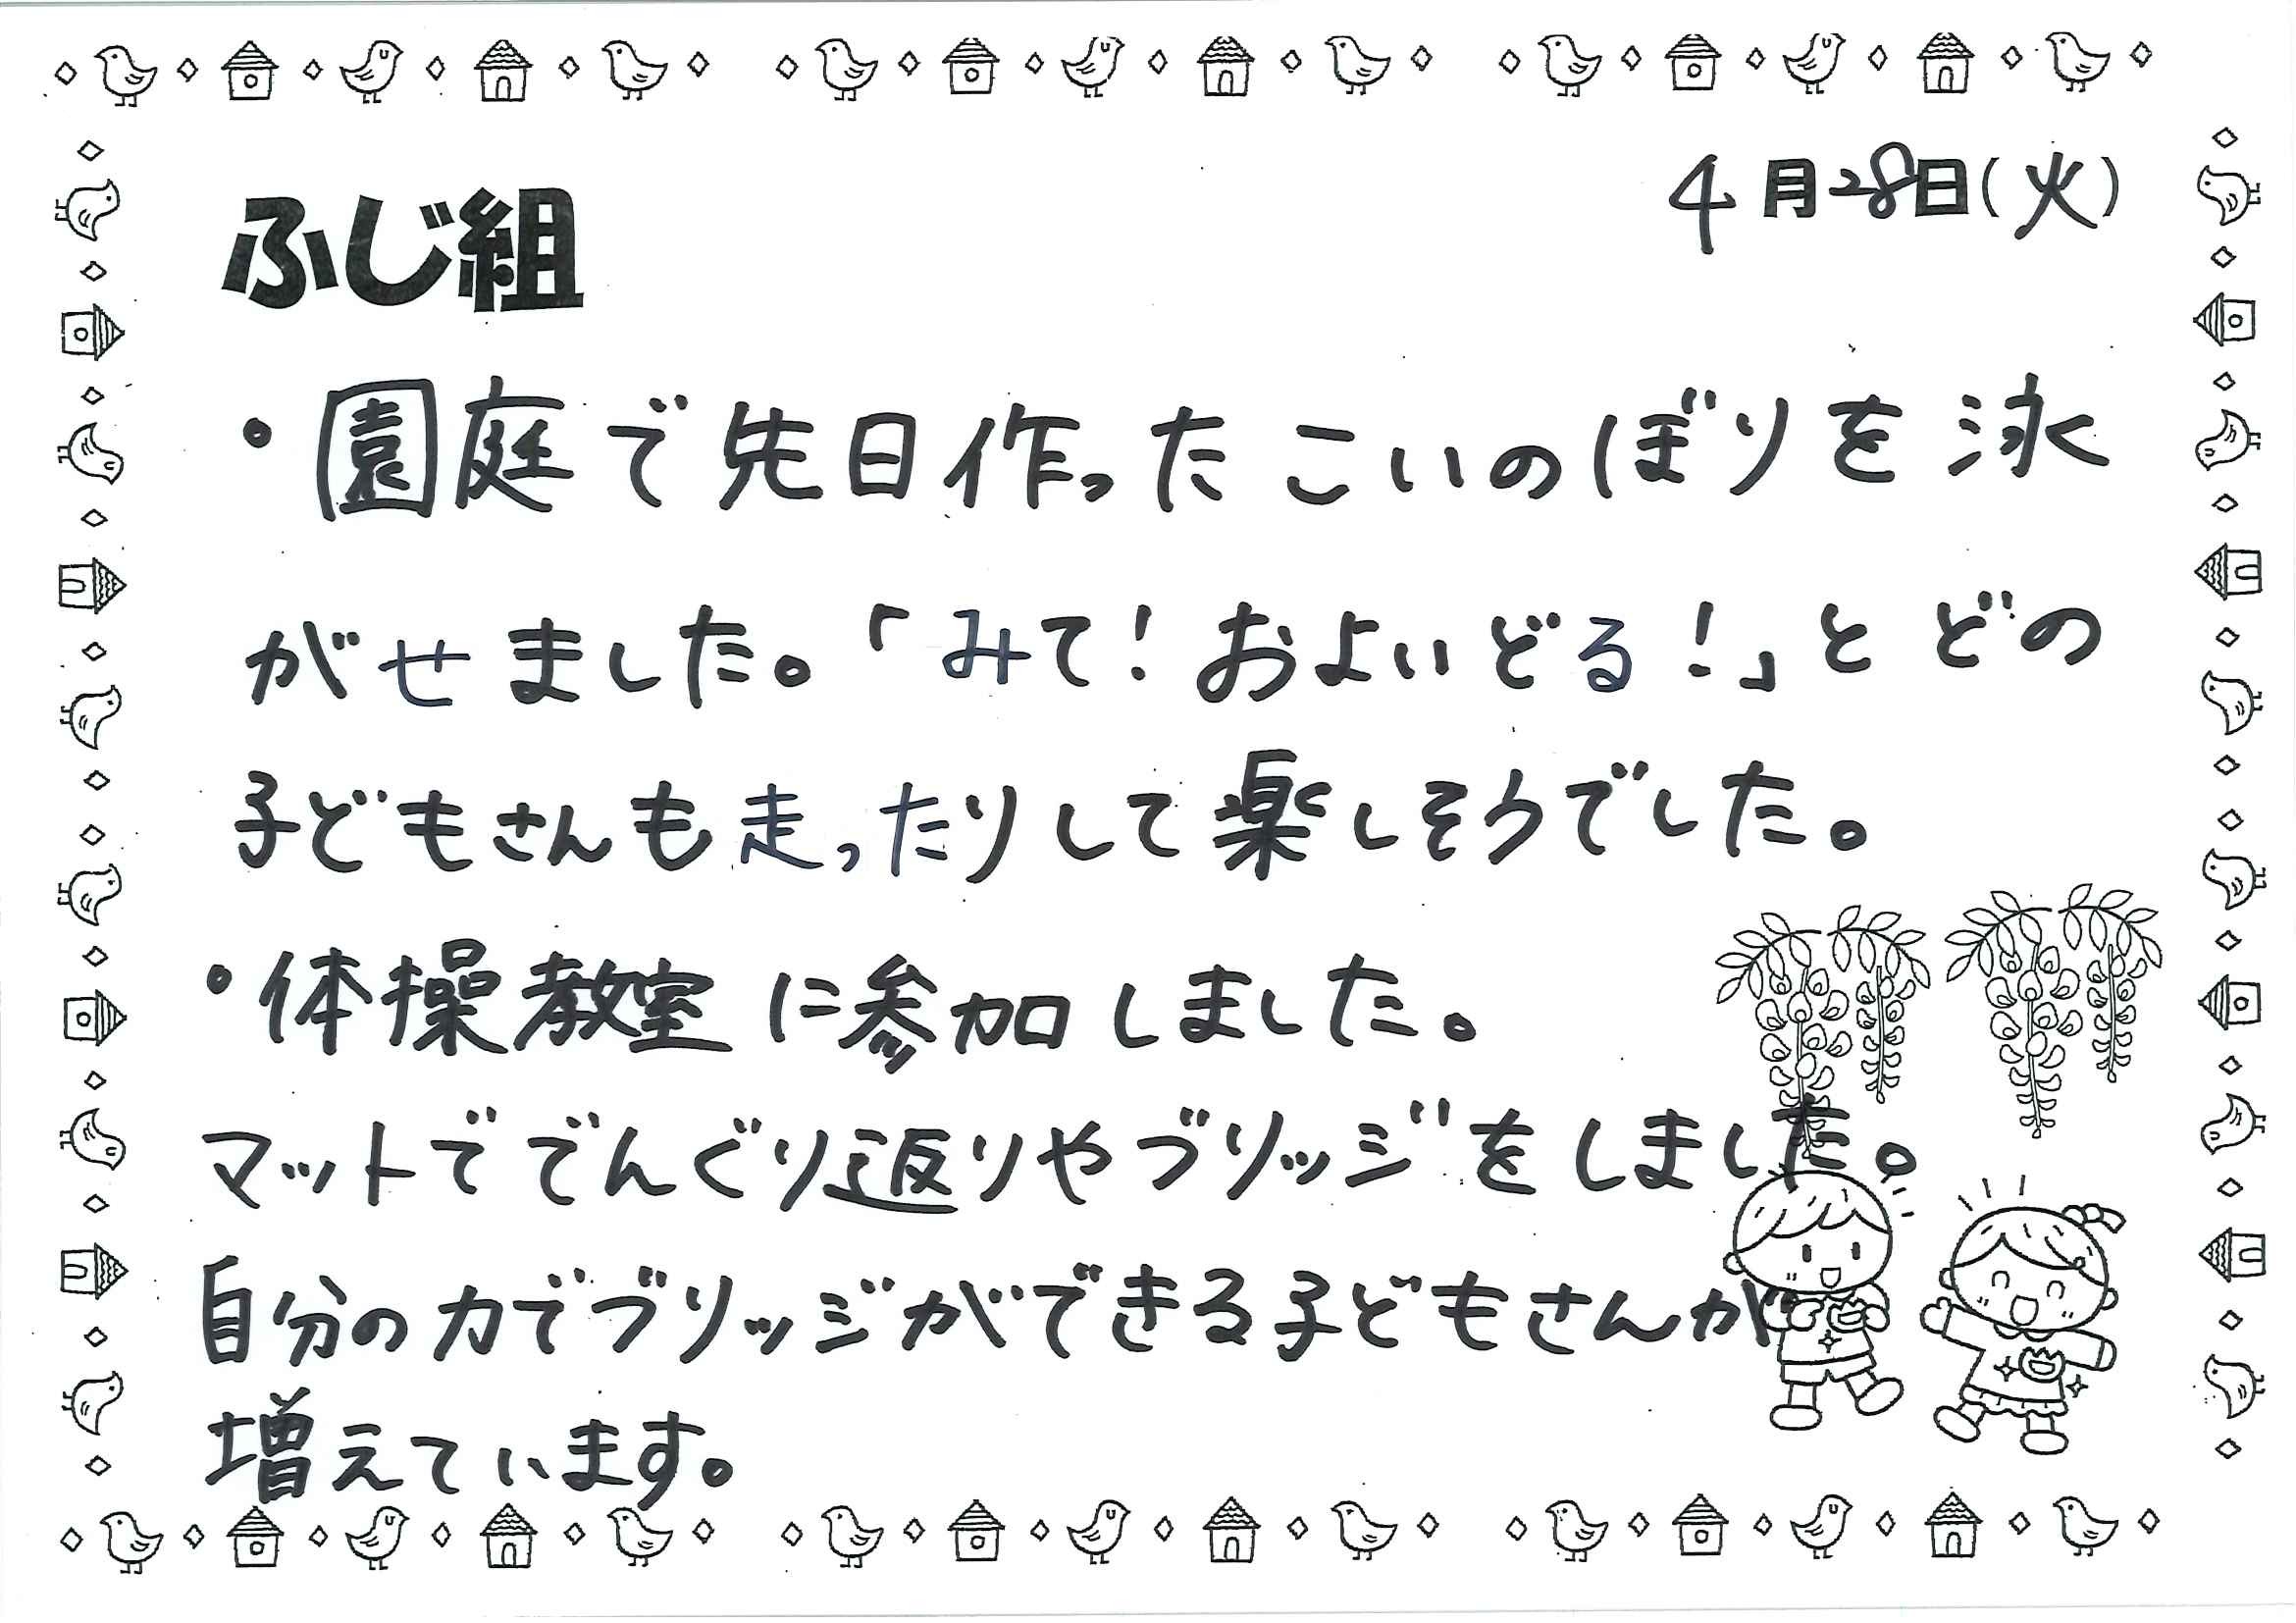 4月28日(火)
ふじ組
・園庭で先日作ったこいのぼりを泳
がせました。「みて!およいどる!」とどの
子どもさんも走ったりして楽しそうでした。
・体操教室に参加しました。
マットででんぐり返りやブリッジをしました。
自分の力でブリッジができる子どもさんが
増えています。